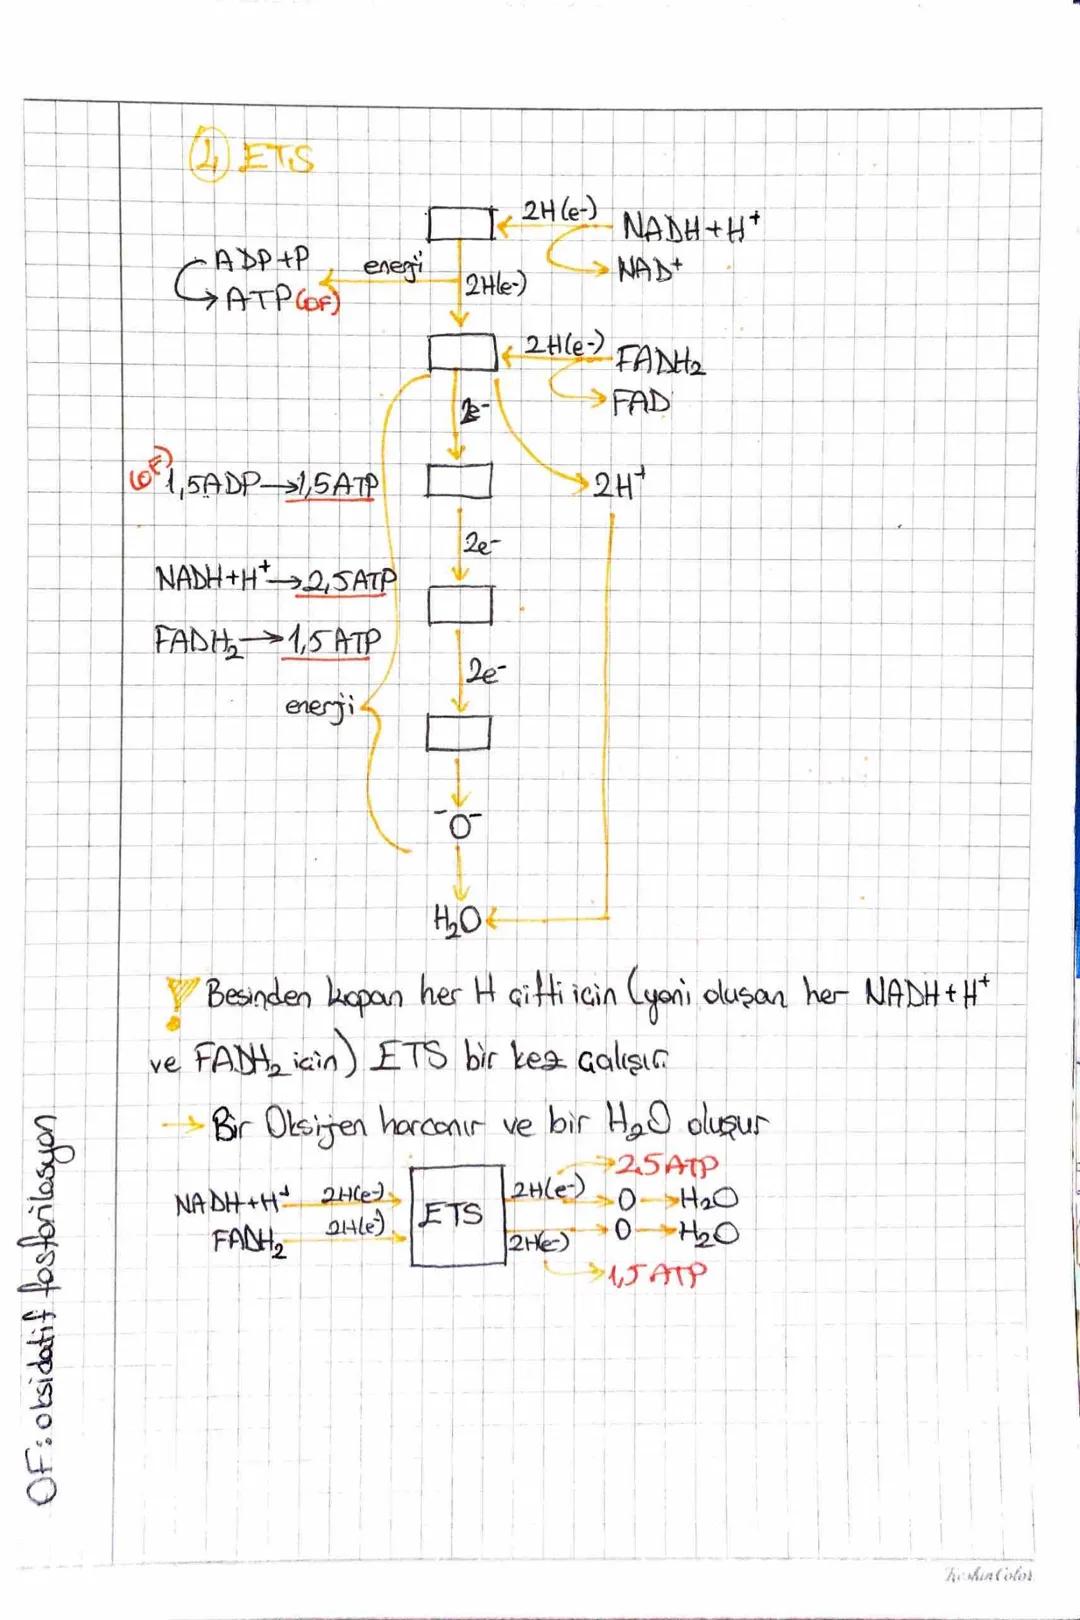 4 ETS
2H(e-) NADH+H⁺
ADP+P enerji NAD⁺
ATP(OF) 2H(e-)
2H(e-) FADH₂
FAD
2e-
(OF) 1,5ADP→1,5ATP 2H⁺
2e-
NADH+H⁺→2,5ATP
FADH₂→1,5 ATP
2e-
enerji
⁻O⁻
H₂O
Besinden kopan her H çifti için (yani oluşan her NADH+H⁺
ve FADH₂ için) ETS bir kez çalışır.
→ Bir Oksijen harcanır ve bir H₂O oluşur
2,5 ATP
NADH+H⁺ 2H(e-) ETS 2H(e-) O→H₂O
FADH₂ 2H(e-) 2H(e-) O→H₂O
1,5 ATP
OF: oksidatif fosforilasyon
KeskinColor